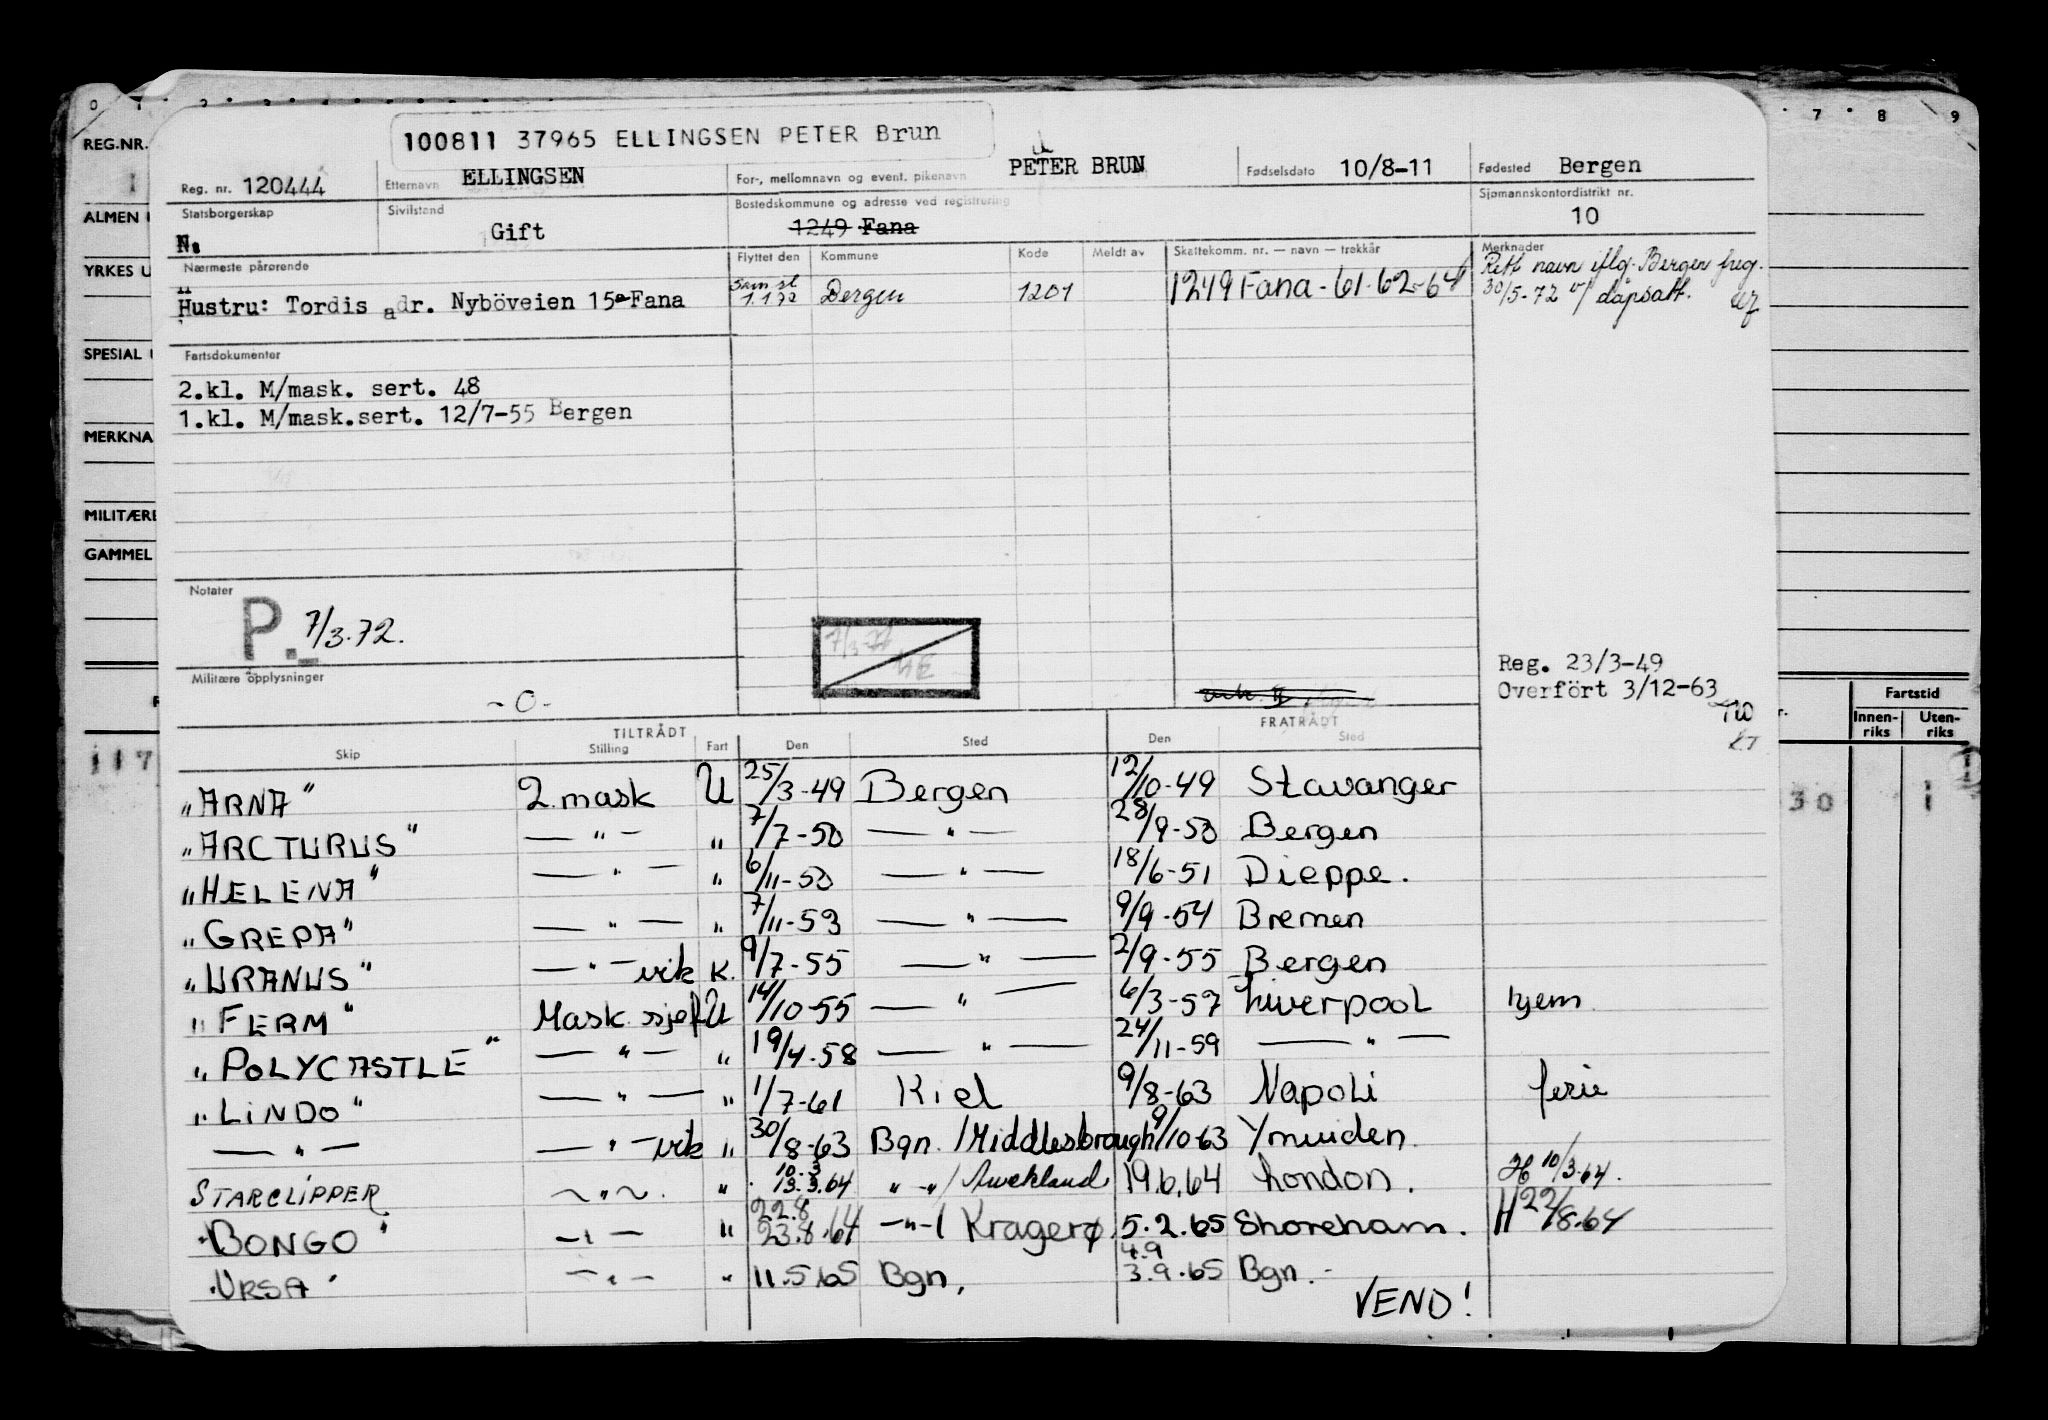 0 1 2 3 7 8 9
REG.NR.
ALMEN
YRKES U
SPESIAL
MERKNA
MILITÆRE
GAMMEL
100811 37965 ELLINGSEN PETER Brun
Reg. nr. 120444 Etternavn ELLINGSEN For-, mellomnavn og event. pikenavn PETER BRUN Fødselsdato 10/8-11 Fødested Bergen
Statsborgerskap N. Sivilstand Gift Bostedskommune og adresse ved registrering 1249 Fana Sjømannskontordistrikt nr. 10
Nærmeste pårørende Flyttet den Kommune Kode Meldt av Skattekomm. nr. — navn — trekkår Merknader
Hustru: Tordis adr. Nyböveien 15a Fana 1.1.72 Bergen 1201 1249 Fana - 61-62-64 Rett navn iflg. Bergen freg.
30/5-72 v/ dåpsatt.
Fartsdokumenter
2.kl. M/mask. sert. 48
1.kl. M/mask.sert. 12/7-55 Bergen
Notater
P. 7/3.72.
Militære opplysninger
-0-
Reg. 23/3-49
Overfört 3/12-63
TILTRÅDT FRATRÅDT
Skip Stilling Fart Den Sted Den Sted
Fartstid
Innen-riks Uten-riks
117 30 1
"ARNA" 2.mask U 25/3-49 Bergen 12/10-49 Stavanger
"ARCTURUS" — " — " 7/7-50 — " — 28/9-50 Bergen
"HELENA" — " — " 6/11-50 — " — 18/6-51 Dieppe.
"GREPA" — " — " 7/11-53 — " — 9/9-54 Bremen
"URANUS" — " — vik K. 9/7-55 — " — 2/9-55 Bergen
"FERM" Mask.sjef U 14/10-55 — " — 6/3-57 Liverpool hjem
"POLYCASTLE" — " — " 19/4-58 — " — 24/11-59 — " —
"LINDO" — " — " 1/7-61 Kiel 9/8-63 Napoli ferie
— " — — " — vik " 30/8-63 Bgn. /Middlesbrough 9/10-63 Ymuiden.
STARCLIPPER — " — . " 10.3 13.3.64 " -"/ Auckland 19.6.64 London. H 10/3-64.
"BONGO" — " — " 22.8 23.8.64 -"-/ Kragerø. 5.2.65 Shoreham. H 22/8.64
"URSA" — " — " 11.5.65 Bgn. 4.9 3.9.65 Bgn.-
VEND!